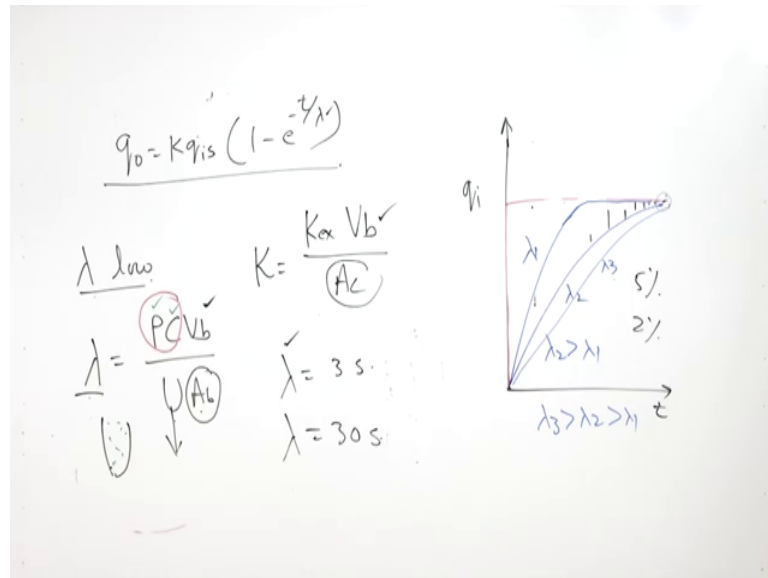 q₀ = K qis (1 - e^-t/λ)
λ low
K = Kex Vb ✓ / Ac
λ = PC Vb ✓ / U Ab
λ = 3 s.
λ = 30 s.
qi
λ1
λ2
λ3
5%
2%
λ2 > λ1
t
λ3 > λ2 > λ1